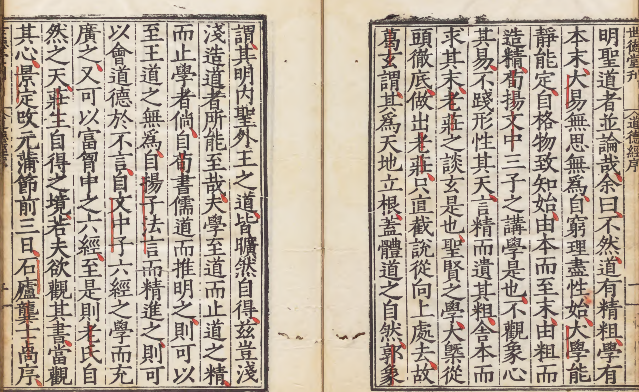 世德堂刊 道德經序
明聖道者並論哉余曰不然道有精粗學有
本末大易無思無為自窮理盡性始大學能
靜能定自格物致知始由本而至末由粗而
造精荀揚文中三子之講學是也不觀象心
其易不踐形性其天言精而遺其粗舍本而
求其末老莊之談玄是也聖賢之學大槩從
頭徹底做出老莊只直截說從向上處去故
葛玄謂其為天地立根蓋體道之自然郭象
謂其明內聖外王之道皆曠然自得茲豈淺
淺造道者所能至哉夫學至道而止道之精
而止學者倘自荀書儒道而推明之則可以
至王道之無為自揚子法言而精進之則可
以會道德於不言自文中子六經之學而充
廣之又可以富胷中之六經至是則老氏自
然之天莊生自得之境若夫欲觀其書當觀
其心景定改元蒲節前三日石廬龔士卨序